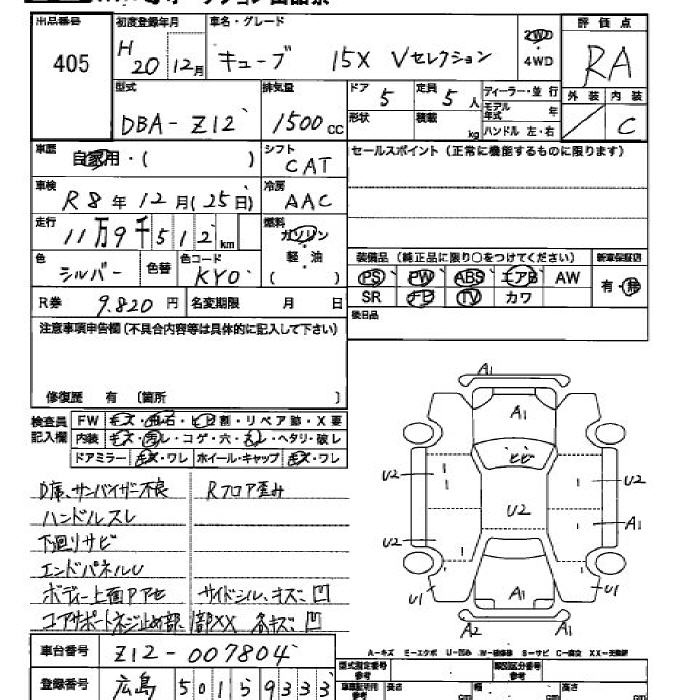 出品番号 405
初度登録年月 H 20 12月
車名・グレード キューブ 15X Vセレクション
2WD ・ 4WD
評価点 RA
外装 内装 C
型式 DBA-Z12
排気量 1500 cc
ドア 5 定員 5 人
形状 積載 kg
ディーラー・並行
モデル年式 年
ハンドル 左・右
車歴 自家用・( )
シフト CAT
セールスポイント (正常に機能するものに限ります)
車検 R8年12月(25日)
冷房 AAC
走行 11万9千512km
燃料 ガソリン 軽・油 ( )
色 シルバー 色替 色コード KY0
装備品 (純正品に限り○をつけてください) 新車保証書
PS PW ABS エアB AW 有・無
SR ナビ TV カワ
R券 9.820 円 名変期限 月 日
後日品
注意事項申告欄 (不具合内容等は具体的に記入して下さい)
修復歴 有 〔箇所 〕
検査員記入欄 FW キズ・飛石・ヒビ割・リペア跡・X要
内装 キズ・汚レ・コゲ・穴・スレ・ヘタリ・破レ
ドアミラー キズ・ワレ ホイール・キャップ キズ・ワレ
A1
A1
ヒビ
U2 U2
U2
A1
U2
U1 A1 U1
A2 A1
D席、サンバイザー不良 Rフロア歪み
ハンドルスレ
下廻リサビ
エンドパネルU
ボディー上面P アセ サイドシル、キズ、凹
コアサポートネジ止め部、1部XX 各キズ、凹
A-キズ E-エクボ U-凹み W-補修跡 S-サビ C-腐食 XX-交換跡
車台番号 Z12-007804
型式指定番号 参考 類別区分番号 参考
登録番号 広島 501 5 9333
車庫証明用 参考 長さ cm 幅 cm 高さ cm